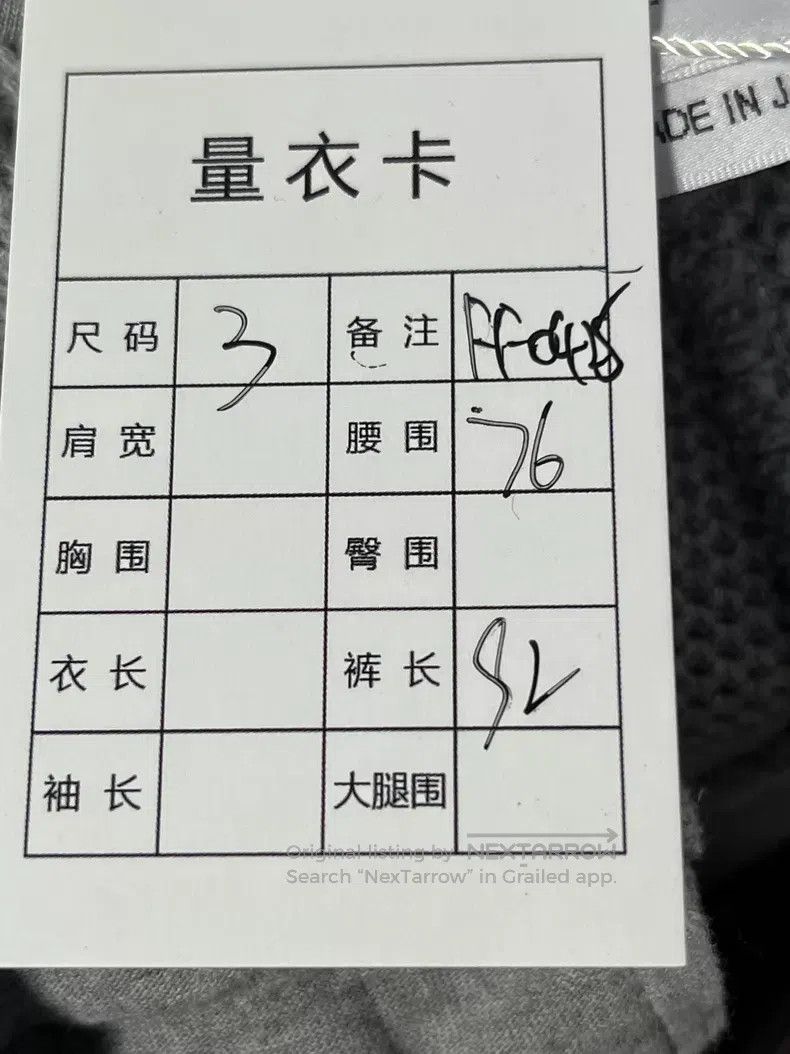 MADE IN J
量衣卡
尺码 3 备注
肩宽 腰围 76
胸围 臀围
衣长 裤长 92
袖长 大腿围
Original listing by NEXTARROW
Search “NexTarrow” in Grailed app.